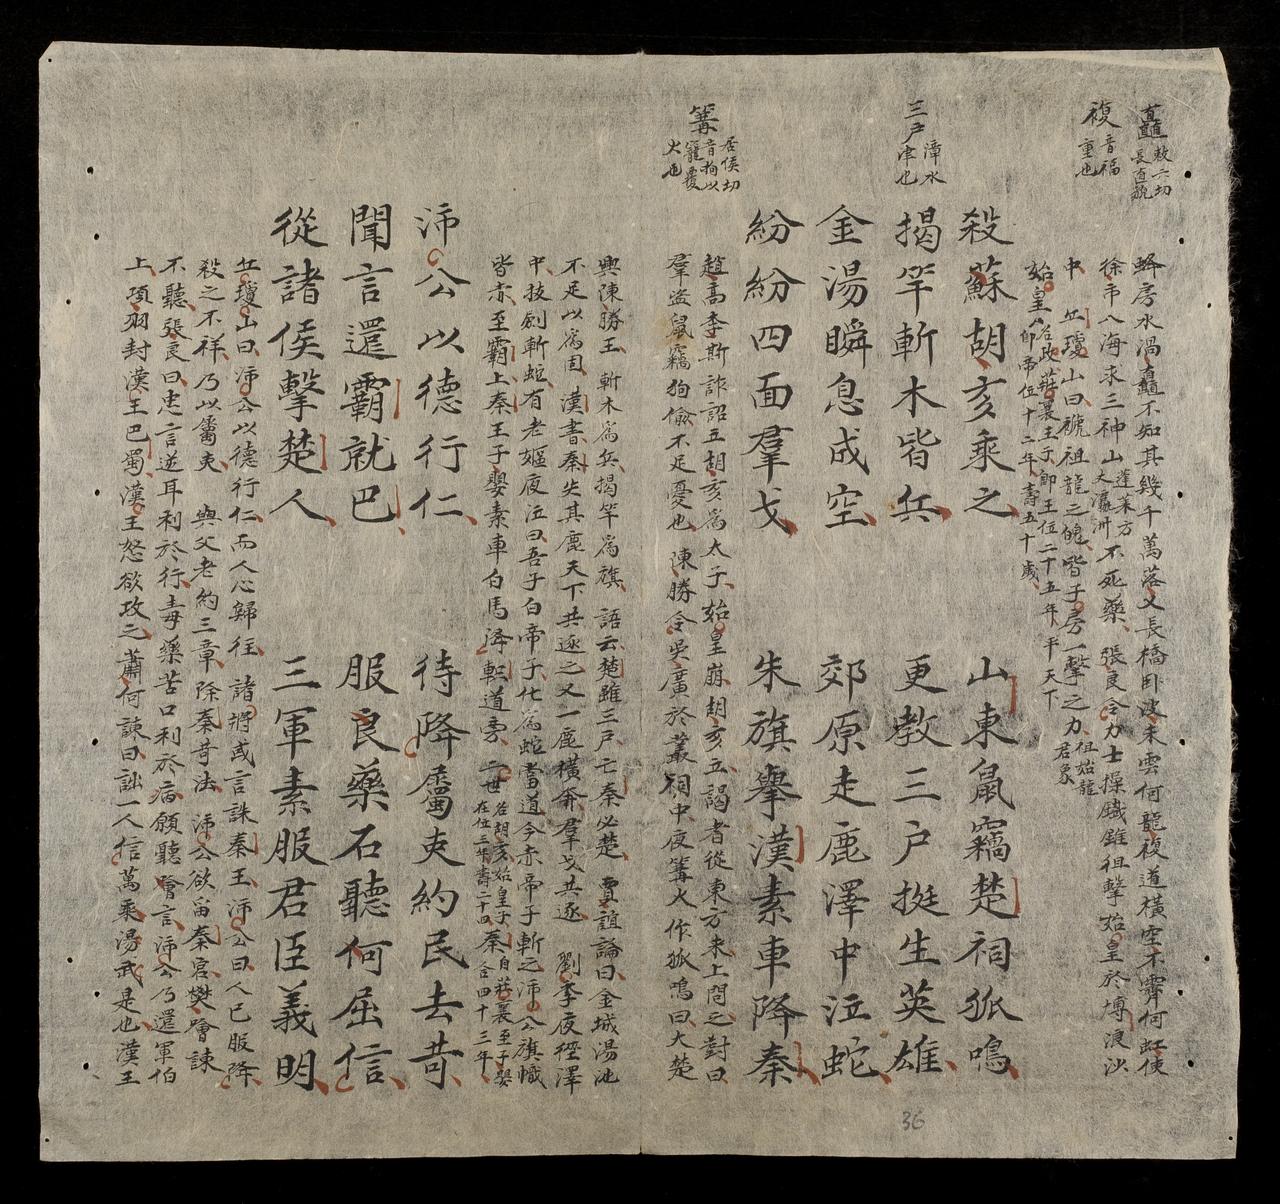 矗 敕六切
長直貌
複 音福
重也
蜂房水渦矗不知其幾千萬落又長橋卧波未雲何龍複道橫空不霽何虹使
徐市入海求三神山 蓬萊方
丈瀛洲 不死藥 張良令力士操鐵錐徂擊始皇於博浪沙
中 丘瓊山曰褫祖龍之魄皆子房一擊之力 祖始龍
君象
始皇 名政莊襄王子即王位二十五年平天下
即帝位十二年壽五十歲
殺蘇胡亥乘之 山東鼠竊楚祠狐鳴
三戶 漳水
津也
揭竿斬木皆兵 更教三户挺生英雄
金湯瞬息成空 郊原走鹿澤中泣蛇
紛紛四面羣戈 朱旗舉漢素車降秦
篝 居侯切
音拘以
籠覆
火也
趙高李斯詐詔立胡亥爲太子始皇崩胡亥立謁者從東方來上問之對曰
羣盗鼠竊狗偷不足憂也 陳勝令吳廣於叢祠中夜篝火作狐鳴曰大楚
興陳勝王 斬木爲兵揭竿爲旗 語云楚雖三戶亡秦必楚 賈誼論曰金城湯池
不足以爲固 漢書秦失其鹿天下共逐之又一鹿橫奔羣戈共逐 劉季夜徑澤
中技劍斬蛇有老嫗夜泣曰吾子白帝子化爲蛇當道今赤帝子斬之沛公旗幟
皆赤至霸上秦王子嬰素車白馬降軹道旁 二世 名胡亥始皇子
在位三年壽二十四 秦 自莊襄至子嬰
合四十三年
沛公以德行仁 待降屬吏約民去苛
聞言還霸就巴 服良藥石聽何屈信
從諸侯擊楚人 三軍素服君臣義明
丘瓊山曰沛公以德行仁而人心歸往 諸將或言誅秦王沛公曰人已服降
殺之不祥乃以屬吏 與父老約三章除秦苛法 沛公欲留秦宮樊噲諫
不聽張良曰忠言逆耳利於行毒藥苦口利於病願聽噲言沛公乃還軍伯
上項羽封漢王巴蜀漢王怒欲攻之蕭何諫曰詘一人信萬乘湯武是也漢王
36